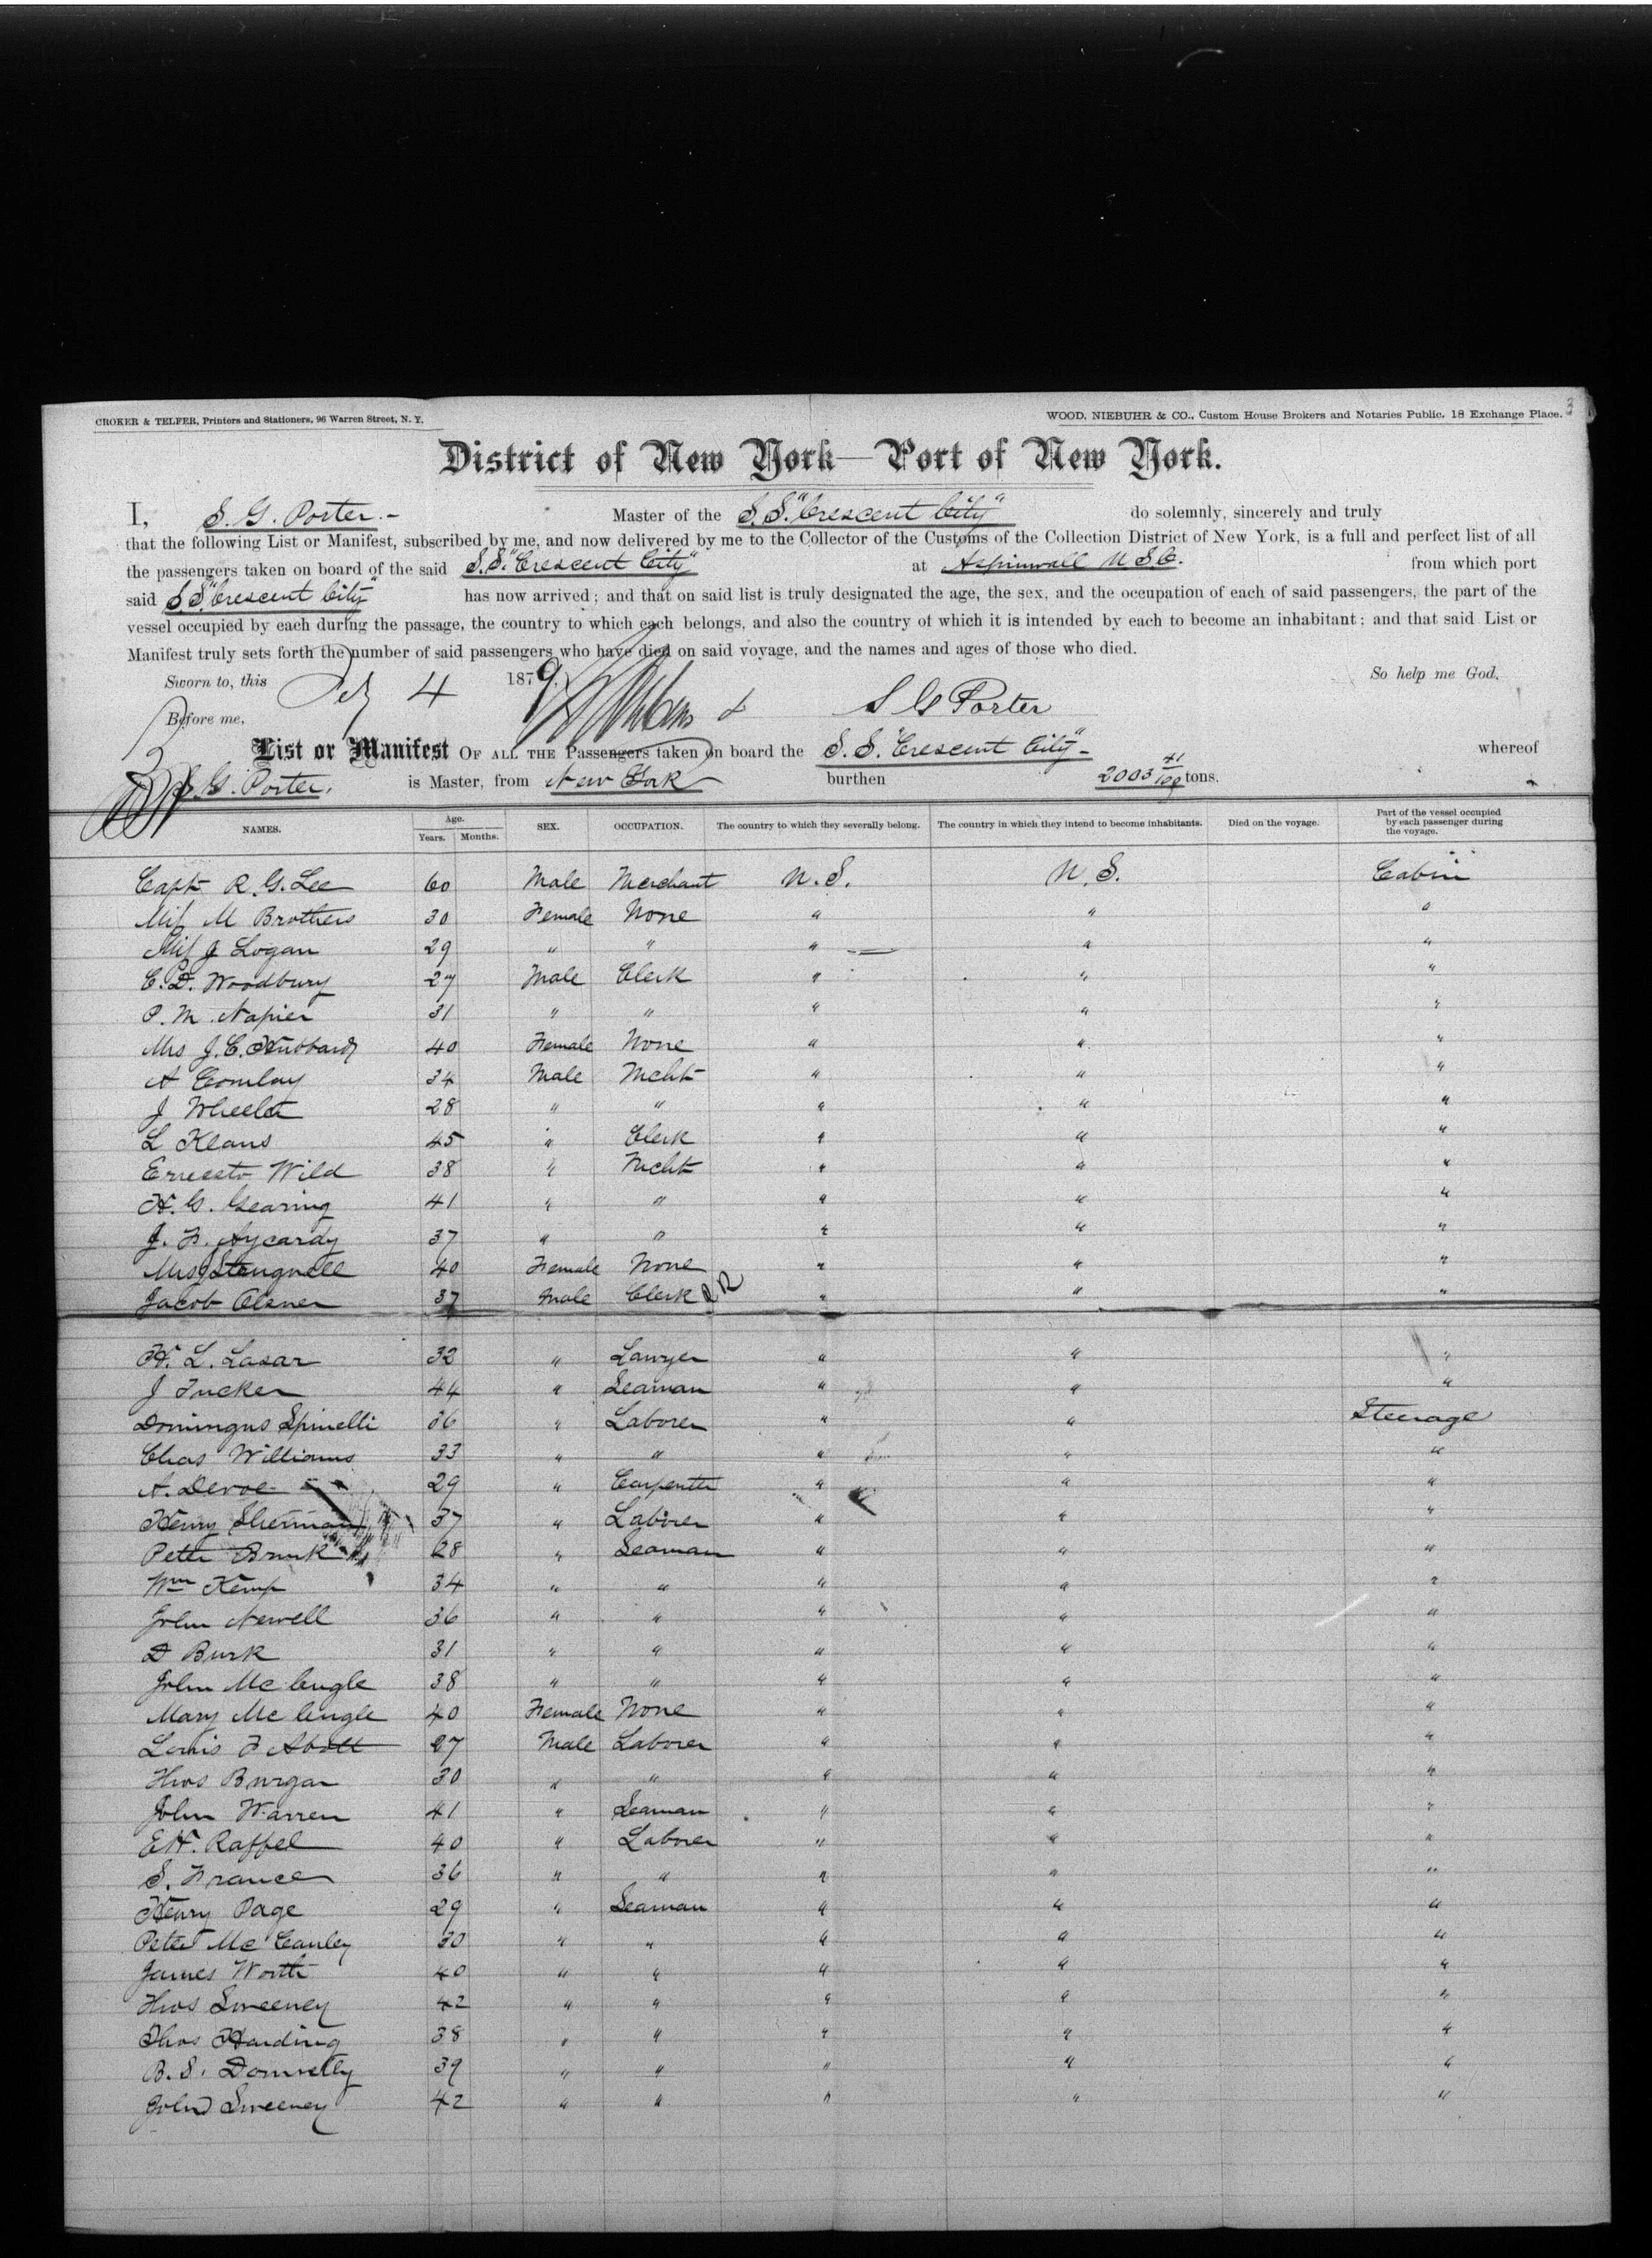 CROKER & TELFER, Printers and Stationers, 96 Warren Street, N. Y. WOOD, NIEBUHR & CO., Custom House Brokers and Notaries Public, 18 Exchange Place. 3
District of New York—Port of New York.
I, S. G. Porter.- Master of the S.S. "Crescent City" do solemnly, sincerely and truly
that the following List or Manifest, subscribed by me, and now delivered by me to the Collector of the Customs of the Collection District of New York, is a full and perfect list of all
the passengers taken on board of the said S.S. "Crescent City" at Aspinwall U S C. from which port
said S.S. "Crescent City" has now arrived; and that on said list is truly designated the age, the sex, and the occupation of each of said passengers, the part of the
vessel occupied by each during the passage, the country to which each belongs, and also the country of which it is intended by each to become an inhabitant; and that said List or
Manifest truly sets forth the number of said passengers who have died on said voyage, and the names and ages of those who died.
Sworn to, this 4 1879. So help me God,
Before me, S G Porter
List or Manifest OF ALL THE Passengers taken on board the S. S. "Crescent City"- whereof
S. G. Porter. is Master, from New York burthen 2003 41/100 tons.
NAMES. Age. Years. Months. SEX. OCCUPATION. The country to which they severally belong. The country in which they intend to become inhabitants. Died on the voyage. Part of the vessel occupied by each passenger during the voyage.
Capt R. G. Lee 60 Male Merchant U.S. U.S. Cabin
Miss M Brothers 30 Female None " " "
Miss J Logan 29 " " " " "
C. D. Woodbury 27 Male Clerk " " "
P. M. Napier 31 " " " " "
Mrs J. C. Hubbard 40 Female None " " "
A 34 Male Mcht " " "
J Wheeler 28 " " " " "
L Klaus 45 " Clerk " " "
Ernesto Wild 38 " Mcht " " "
H. G. Gearing 41 " " " " "
J. F. Aycardy 37 " " " " "
Mrs 40 Female None " " "
Jacob 37 Male Clerk " " "
H. L. Lasar 32 " Lawyer " " "
J Tucker 44 " Seaman " " "
Domingus Spinelli 36 " Laborer " " Steerage
Chas Williams 33 " " " " "
A. Devoe 29 " Carpenter " " "
Henry Sherman 37 " Laborer " " "
Peter 28 " Seaman " " "
Wm Kemp 34 " " " " "
John Newell 36 " " " " "
D Burk 31 " " " " "
John Mc 38 " " " " "
Mary Mc 40 Female None " " "
Louis F Abott 27 Male Laborer " " "
Thos Burgan 30 " " " " "
John Warren 41 " Seaman " " "
E H. Raffel 40 " Laborer " " "
S. France 36 " " " " "
Henry Page 29 " Seaman " " "
Peter Mc Cauley 30 " " " " "
James Worth 40 " " " " "
Thos Sweeney 42 " " " " "
Thos Harding 38 " " " " "
B. S. Donnelly 39 " " " " "
John Sweeney 42 " " " " "